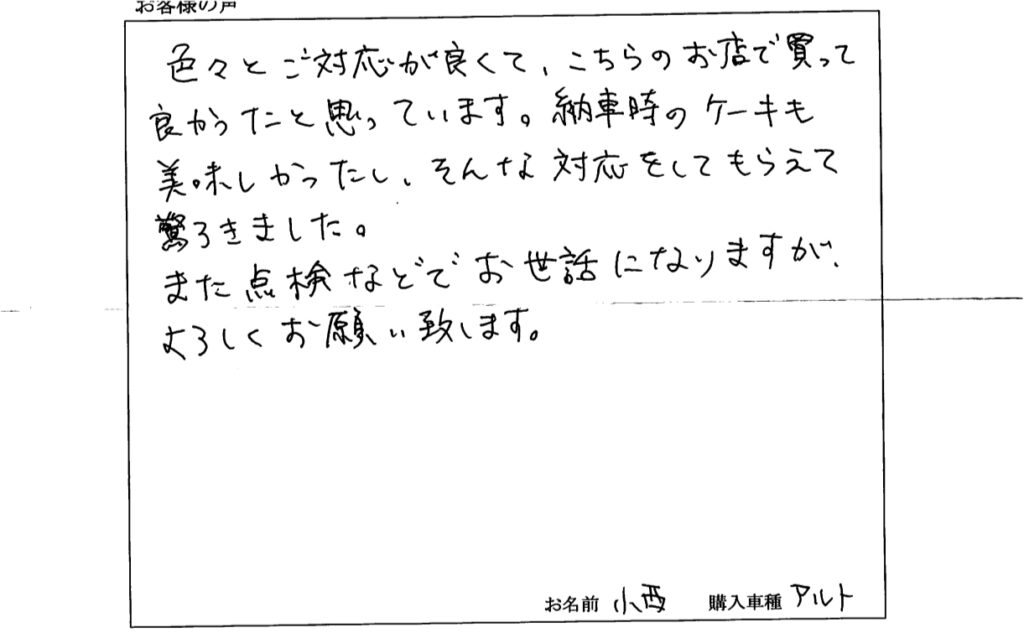 お客様の声
色々とご対応が良くて、こちらのお店で買って
良かったと思っています。納車時のケーキも
美味しかったし、そんな対応をしてもらえて
驚ろきました。
また点検などでお世話になりますが、
よろしくお願い致します。
お名前 小西 購入車種 アルト